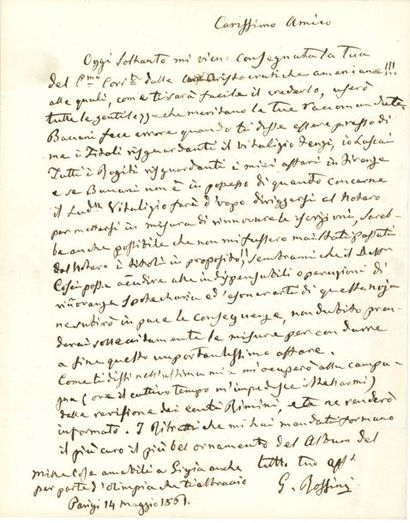 Carissimo Amico
Oggi soltanto mi viene consegnata la tua
del Pmo Corrte dalle Aristocratiche americane!!!
alle quali, come ti sarà facile il crederlo, userò
tutte le gentilezze che meritano le tue raccomandate
Bavani fece errore quando ti disse essere presso di
me i Titoli risguardanti il Vitalizio Fenzi, io lasciai
Tutti i Rogiti risguardanti i miei affari in Firenze
e se Bavani non è in possesso di quanto concerne
il Vitalizio farà d'uopo diriggersi al Notaro
per mettersi in misura di rinnovare le iscrizioni, Sareb-
be anche possibile che non mi fussero mai stati passati
dal Notaro i titoli in proposito!! sembrami che il
possa accudire alle indispensabili operazioni di
Ipotecaria ed esonerarti di questa noja
ne subirò in pace le conseguenze, non dubito pren-
derai sollecitamente le misure per condurre
a fine questo importantissimo affare.
Come ti dissi nell'ultima mia mi occuperò alla campa-
gna (ove il cattivo tempo m'impedisce istallarmi)
della revisione dei conti Rimini, e te ne renderò
informato. I Ritratti che mi hai mandati formano
il più caro il più bel ornamento del Album del
tutto tuo Afft
mille cose amabili a Gigia anche
per parte d'Olimpia che ti abbraccio
G. Rossini
Parigi 14 Maggio 1861.